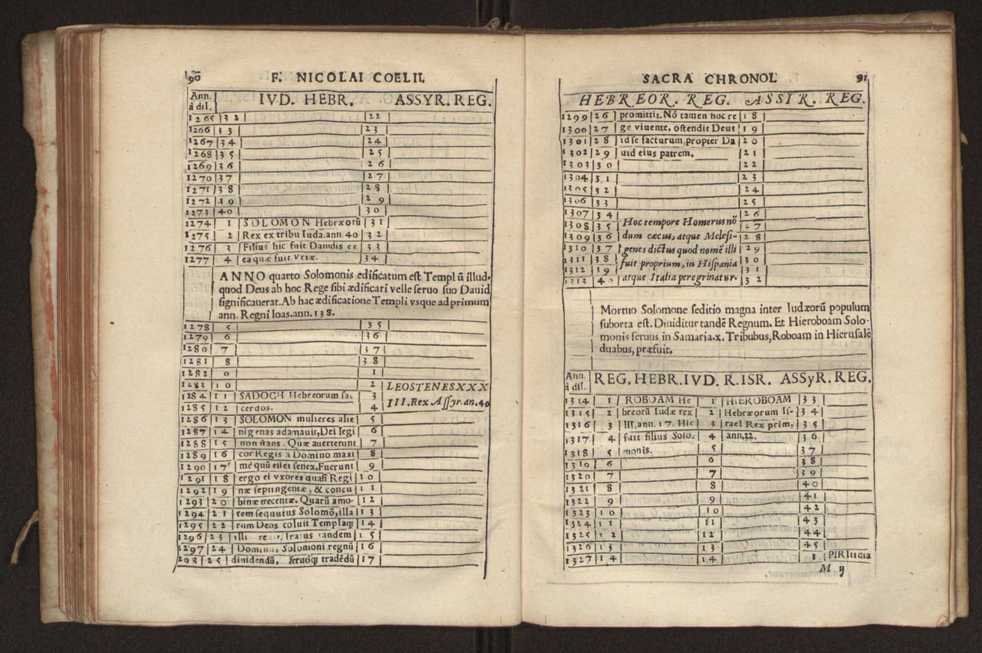 90 F. NICOLAI COELII.
Ann. à dil. IVD. HEBR. ASSYR. REG.
1265 32 22
1266 33 23
1267 34 24
1268 35 25
1269 36 26
1270 37 27
1271 38 28
1272 39 29
1273 40 30
1274 1 SOLOMON Hebræorū 31
1275 2 Rex ex tribu Iuda. ann 40 32
1276 3 Filius hic fuit Dauidis ex 33
1277 4 ea quæ fuit Vriæ. 34
ANNO quarto Solomonis edificatum est Templū illud,
quod Deus ab hoc Rege sibi ædificari velle seruo suo Dauid
significauerat. Ab hac ædificatione Templi vsque ad primum
ann. Regni Ioas. ann. 138.
1278 5 35
1279 6 36
1280 7 37
1281 8 38
1282 9 1
1283 10 2 LEOSTENES XXX
1284 11 SADOCH Hebreorum sa- 3 III. Rex Assyr. an. 40
1285 12 cerdos. 4
1286 13 SOLOMON mulieres alie 5
1287 14 nigenas adamauit, Dei legi 6
1288 15 non stans. Quæ auerterunt 7
1289 16 cor Regis a Domino maxi 8
1290 17 mè quū eilet senex. Fuerunt 9
1291 18 ergo ei vxores quasi Regi 10
1292 19 næ septingentæ, & concu 11
1293 20 binæ trecentæ. Quarū amo- 12
1294 21 rem sequutus Solomō, illa 13
1295 22 rum Deos coluit Templaq; 14
1296 23 Iratus tandem 15
1297 24 Dominus Solomoni regnū 16
298 25 diuidendū, seruoq; tradēdū 17
SACRA CHRONOL. 91
HEBREOR. REG. ASSIR. REG.
1299 26 promittit. Nō tamen hoc re 18
1300 27 ge viuente, ostendit Deus 19
1301 28 id se facturum, propter Da 20
1302 29 uid eius patrem. 21
1303 30 22
1304 31 23
1305 32 24
1306 33 25
1307 34 26
1308 35 Hoc tempore Homerus nō 27
1309 36 dum cæcus, atque Melesi- 28
1310 37 genes dictus quod nomē illi 29
1311 38 fuit proprium, in Hispania 30
1312 39 atque Italia peregrinatur. 31
1312 40 32
Mortuo Solomone seditio magna inter Iudæorū populum
suborta est. Diuiditur tandē Regnum. Et Hieroboam Solo-
monis seruus in Samaria. x. Tribubus, Roboam in Hierusalē
duabus, præfuit.
Ann. à dil. REG. HEBR. IVD. R. ISR. ASSyR. REG.
1314 1 ROBOAM He 1 HIEROBOAM 33
1315 2 breorū Iudæ rex 2 Hebræorum Is- 34
1316 3 III. ann. 17. Hic 3 rael Rex prim, 35
1317 4 fuit filius Solo- 4 ann. 22. 36
1318 5 monis. 5 37
1319 6 6 38
1320 7 7 39
1321 8 8 40
1322 9 9 41
1323 10 10 42
1324 11 11 43
1325 12 12 44
1326 13 13 45
1327 14 14 1 PIRItidia
M ij